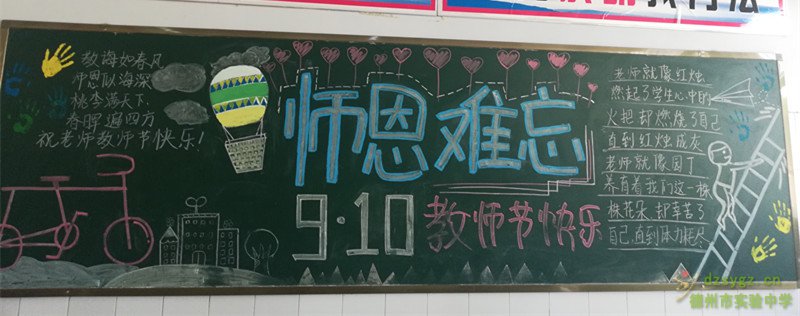 教海如春风
师恩似海深
桃李满天下
春晖遍四方
祝老师教师节快乐!
师恩难忘
9·10 教师节快乐
老师就像红烛,
燃起了学生心中的
火把却燃烧了自己
直到红烛成灰
老师就像园丁
养育着我们这一株
株花朵,却辛苦了
自己直到体力耗尽
dzsygz.cn
德州市实验中学